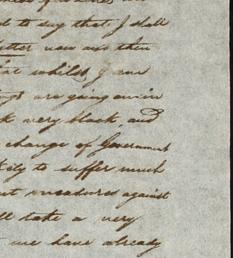 d to say that I shall
letter now and then
that whilst I am
are going on in
k very black, and
change of Government
kely to suffer much
measures against
ll take a very
we have already